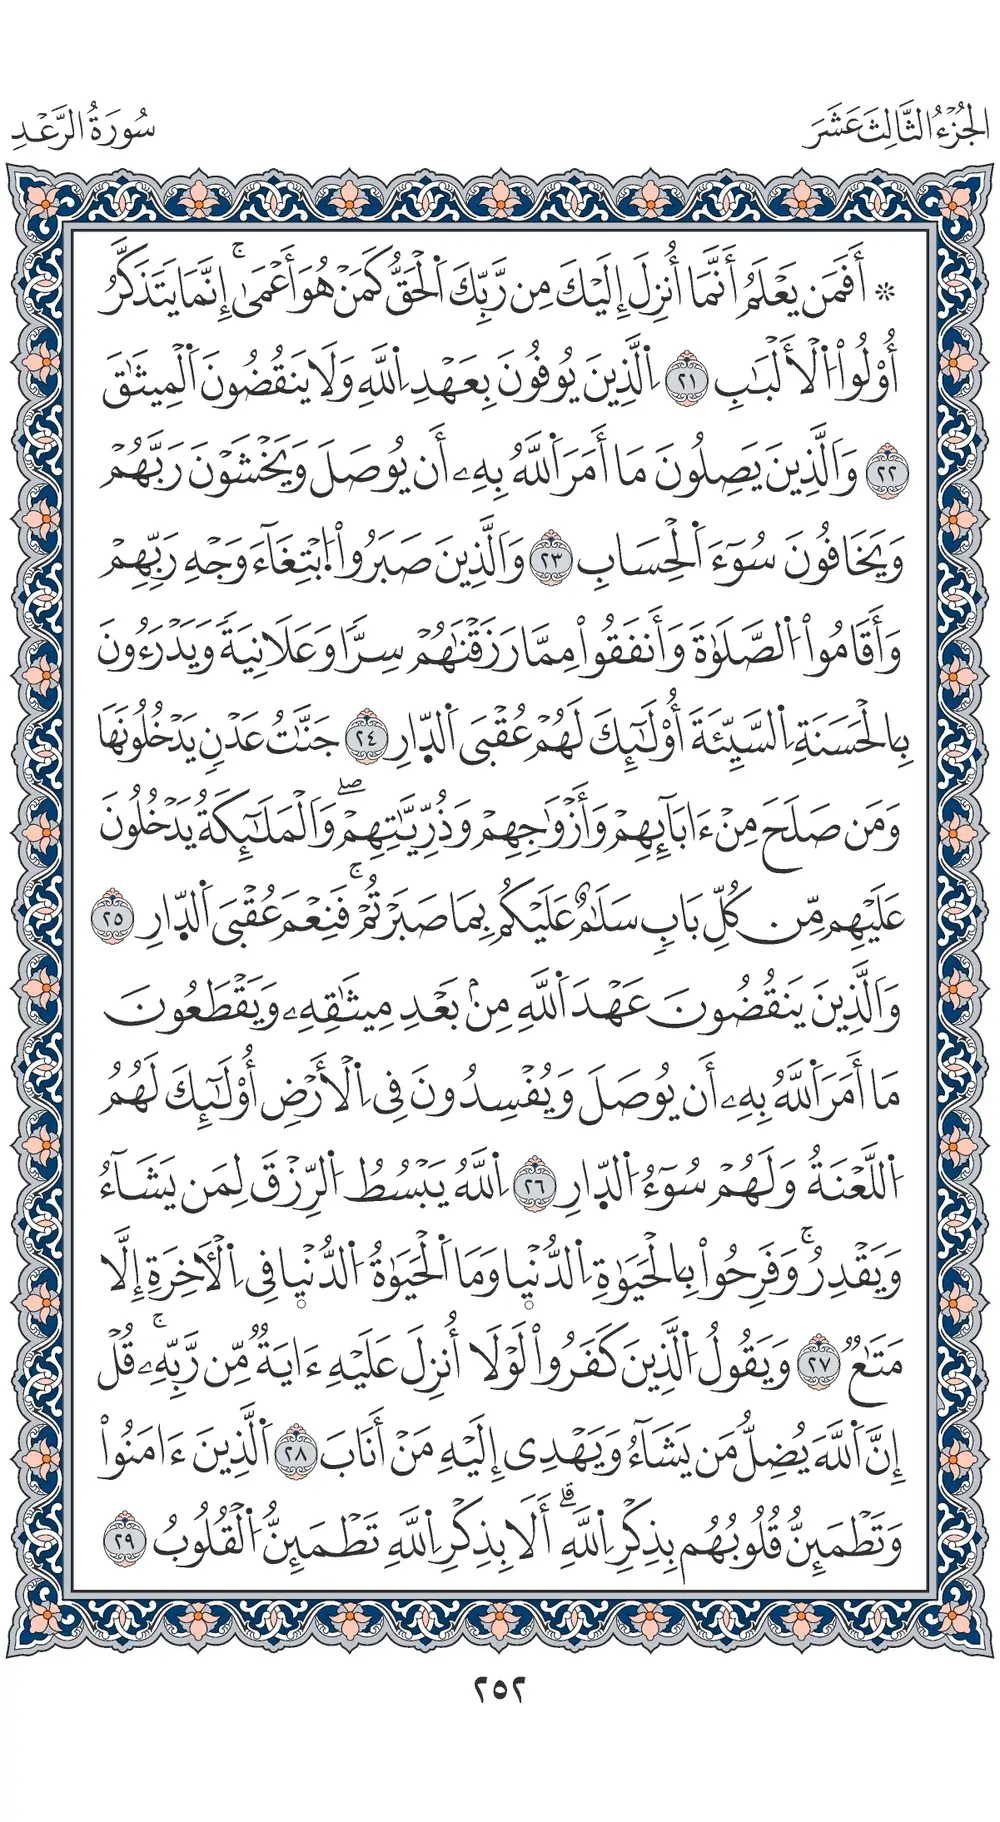 الجُزْءُ الثَّالِثَ عَشَرَ
سُورَةُ الرَّعْدِ
* أَفَمَن يَعْلَمُ أَنَّمَا أُنزِلَ إِلَيْكَ مِن رَّبِّكَ اَ۬لْحَقُّ كَمَنْ هُوَ أَعْمَىٰۚ إِنَّمَا يَتَذَكَّرُ
أُوْلُواْ اُ۬لْأَلْبَٰبِ ٢١ اِ۬لَّذِينَ يُوفُونَ بِعَهْدِ اِ۬للَّهِ وَلَا يَنقُضُونَ اَ۬لْمِيثَٰقَ
٢٢ وَالَّذِينَ يَصِلُونَ مَا أَمَرَ اَ۬للَّهُ بِهِۦ أَن يُوصَلَ وَيَخْشَوْنَ رَبَّهُمْ
وَيَخَافُونَ سُوٓءَ اَ۬لْحِسَابِ ٢٣ وَالَّذِينَ صَبَرُواْ اُ۪بْتِغَآءَ وَجْهِ رَبِّهِمْ
وَأَقَامُواْ اُ۬لصَّلَوٰةَ وَأَنفَقُواْ مِمَّا رَزَقْنَٰهُمْ سِرّٗا وَعَلَانِيَةٗ وَيَدْرَءُونَ
بِالْحَسَنَةِ اِ۬لسَّيِّئَةَ أُوْلَٰٓئِكَ لَهُمْ عُقْبَى اَ۬لدّ۪ارِ ٢٤ جَنَّٰتُ عَدْنٖ يَدْخُلُونَهَا
وَمَن صَلَحَ مِنْ ءَابَآئِهِمْ وَأَزْوَٰجِهِمْ وَذُرِّيَّٰتِهِمْۖ وَالْمَلَٰٓئِكَةُ يَدْخُلُونَ
عَلَيْهِم مِّن كُلِّ بَابٖ سَلَٰمٌ عَلَيْكُم بِمَا صَبَرْتُمْۚ فَنِعْمَ عُقْبَى اَ۬لدّ۪ارِ ٢٥
وَالَّذِينَ يَنقُضُونَ عَهْدَ اَ۬للَّهِ مِنۢ بَعْدِ مِيثَٰقِهِۦ وَيَقْطَعُونَ
مَا أَمَرَ اَ۬للَّهُ بِهِۦ أَن يُوصَلَ وَيُفْسِدُونَ فِي اِ۬لْأَرْضِ أُوْلَٰٓئِكَ لَهُمُ
اُ۬للَّعْنَةُ وَلَهُمْ سُوٓءُ اُ۬لدّ۪ارِ ٢٦ اِ۬للَّهُ يَبْسُطُ اُ۬لرِّزْقَ لِمَن يَشَآءُ
وَيَقْدِرُۚ وَفَرِحُواْ بِالْحَيَوٰةِ اِ۬لدُّنْي۪ا وَمَا اَ۬لْحَيَوٰةُ اُ۬لدُّنْي۪ا فِي اِ۬لْأٓخِرَةِ إِلَّا
مَتَٰعٞ ٢٧ وَيَقُولُ اُ۬لَّذِينَ كَفَرُواْ لَوْلَا أُنزِلَ عَلَيْهِ ءَايَةٞ مِّن رَّبِّهِۦۚ قُلْ
إِنَّ اَ۬للَّهَ يُضِلُّ مَن يَشَآءُ وَيَهْدِي إِلَيْهِ مَنْ أَنَابَ ٢٨ اَ۬لَّذِينَ ءَامَنُواْ
وَتَطْمَئِنُّ قُلُوبُهُم بِذِكْرِ اِ۬للَّهِۗ أَلَا بِذِكْرِ اِ۬للَّهِ تَطْمَئِنُّ اُ۬لْقُلُوبُ ٢٩
٢٥٢